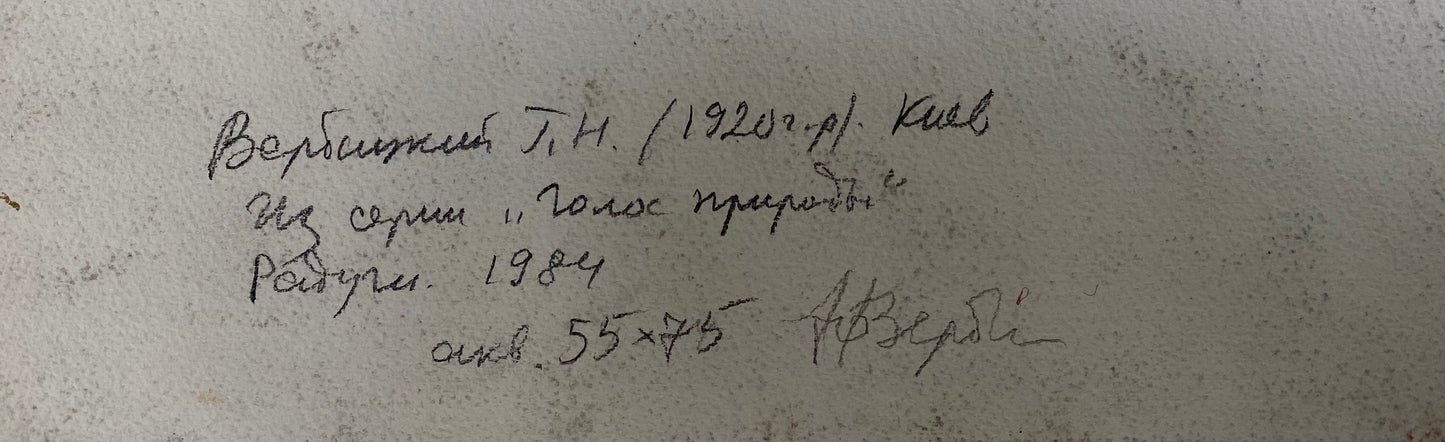 Вербицкий Г.Н. /1920 г.р/. Киев
Из серии „Голос природы“
Радуги. 1984
акв. 55×75